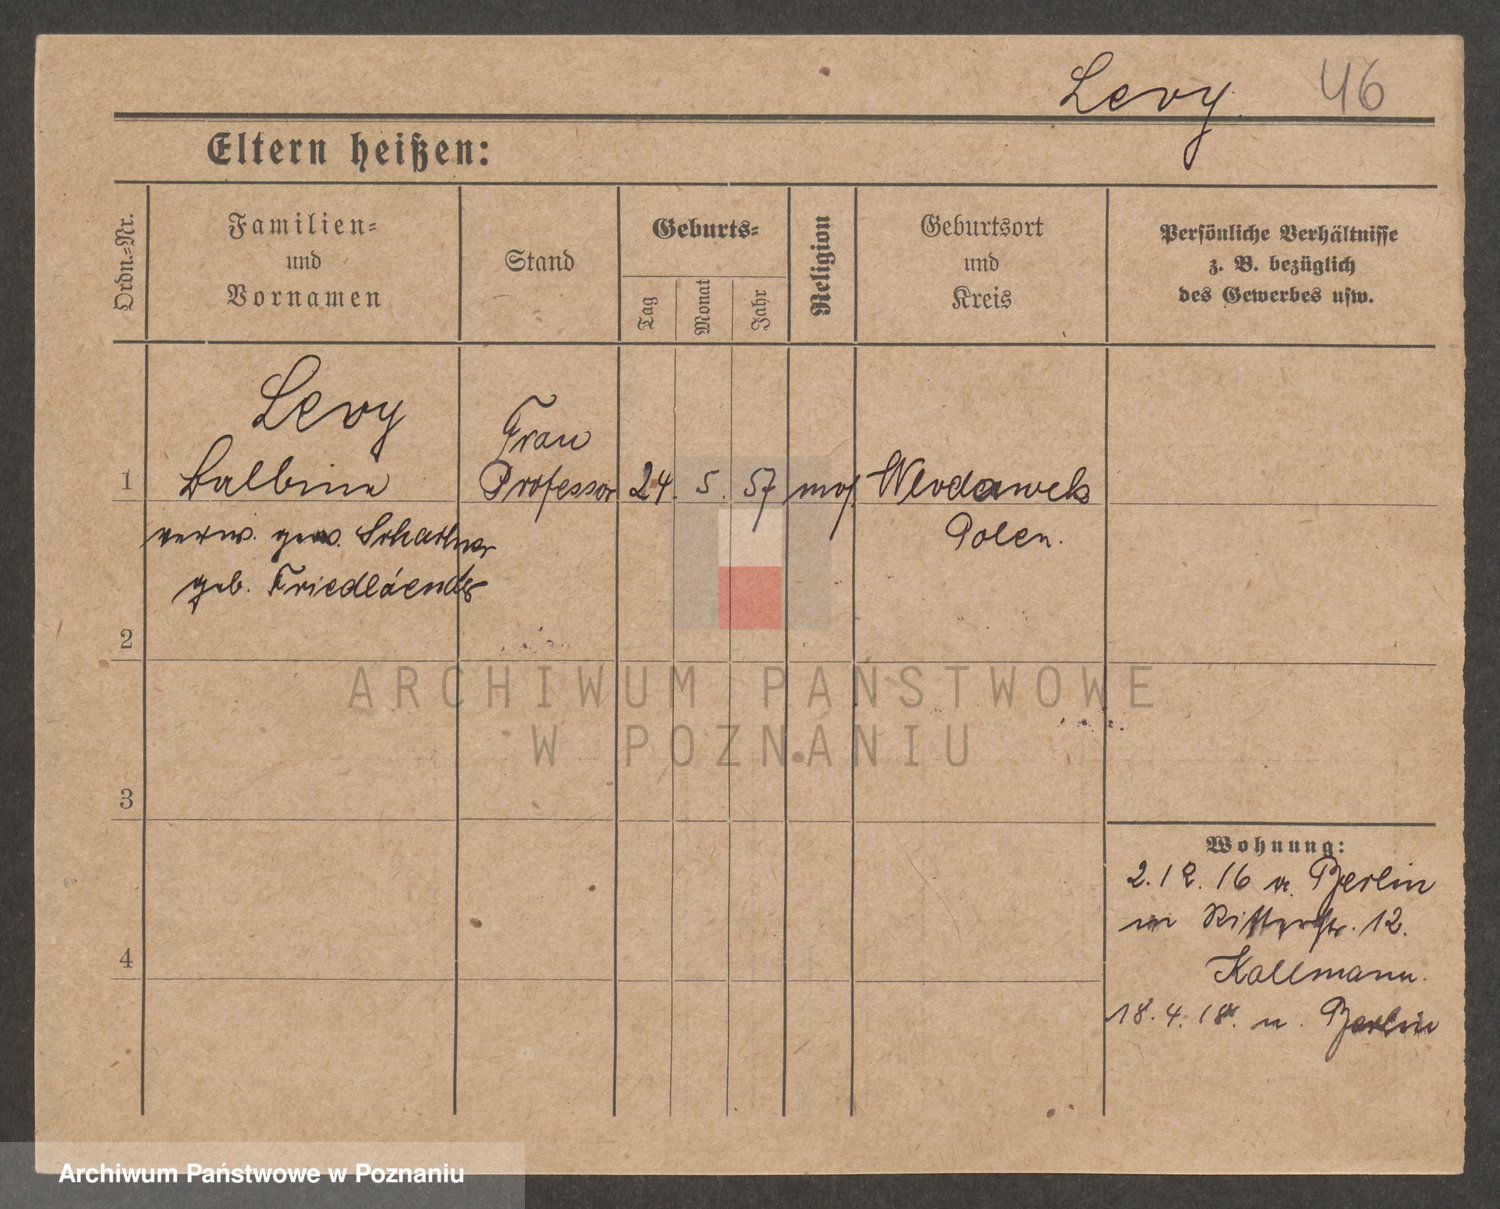 Levy 46
Eltern heißen:
Ordn.-Nr.
Familien-
und
Vornamen
Stand
Geburts-
Tag
Monat
Jahr
Religion
Geburtsort
und
Kreis
Persönliche Verhältnisse
z. B. bezüglich
des Gewerbes usw.
Levy
Frau
1 Balbina Professor 24. 5. 57 mos. Wlodawek
verw. gew. Polen.
geb. Friedlaender
2
3
4
Wohnung:
2.12.16 v. Berlin
Ritterstr. 12.
Kallmann.
18.4.18. n. Berlin
ARCHIWUM PAŃSTWOWE
W POZNANIU
Archiwum Państwowe w Poznaniu